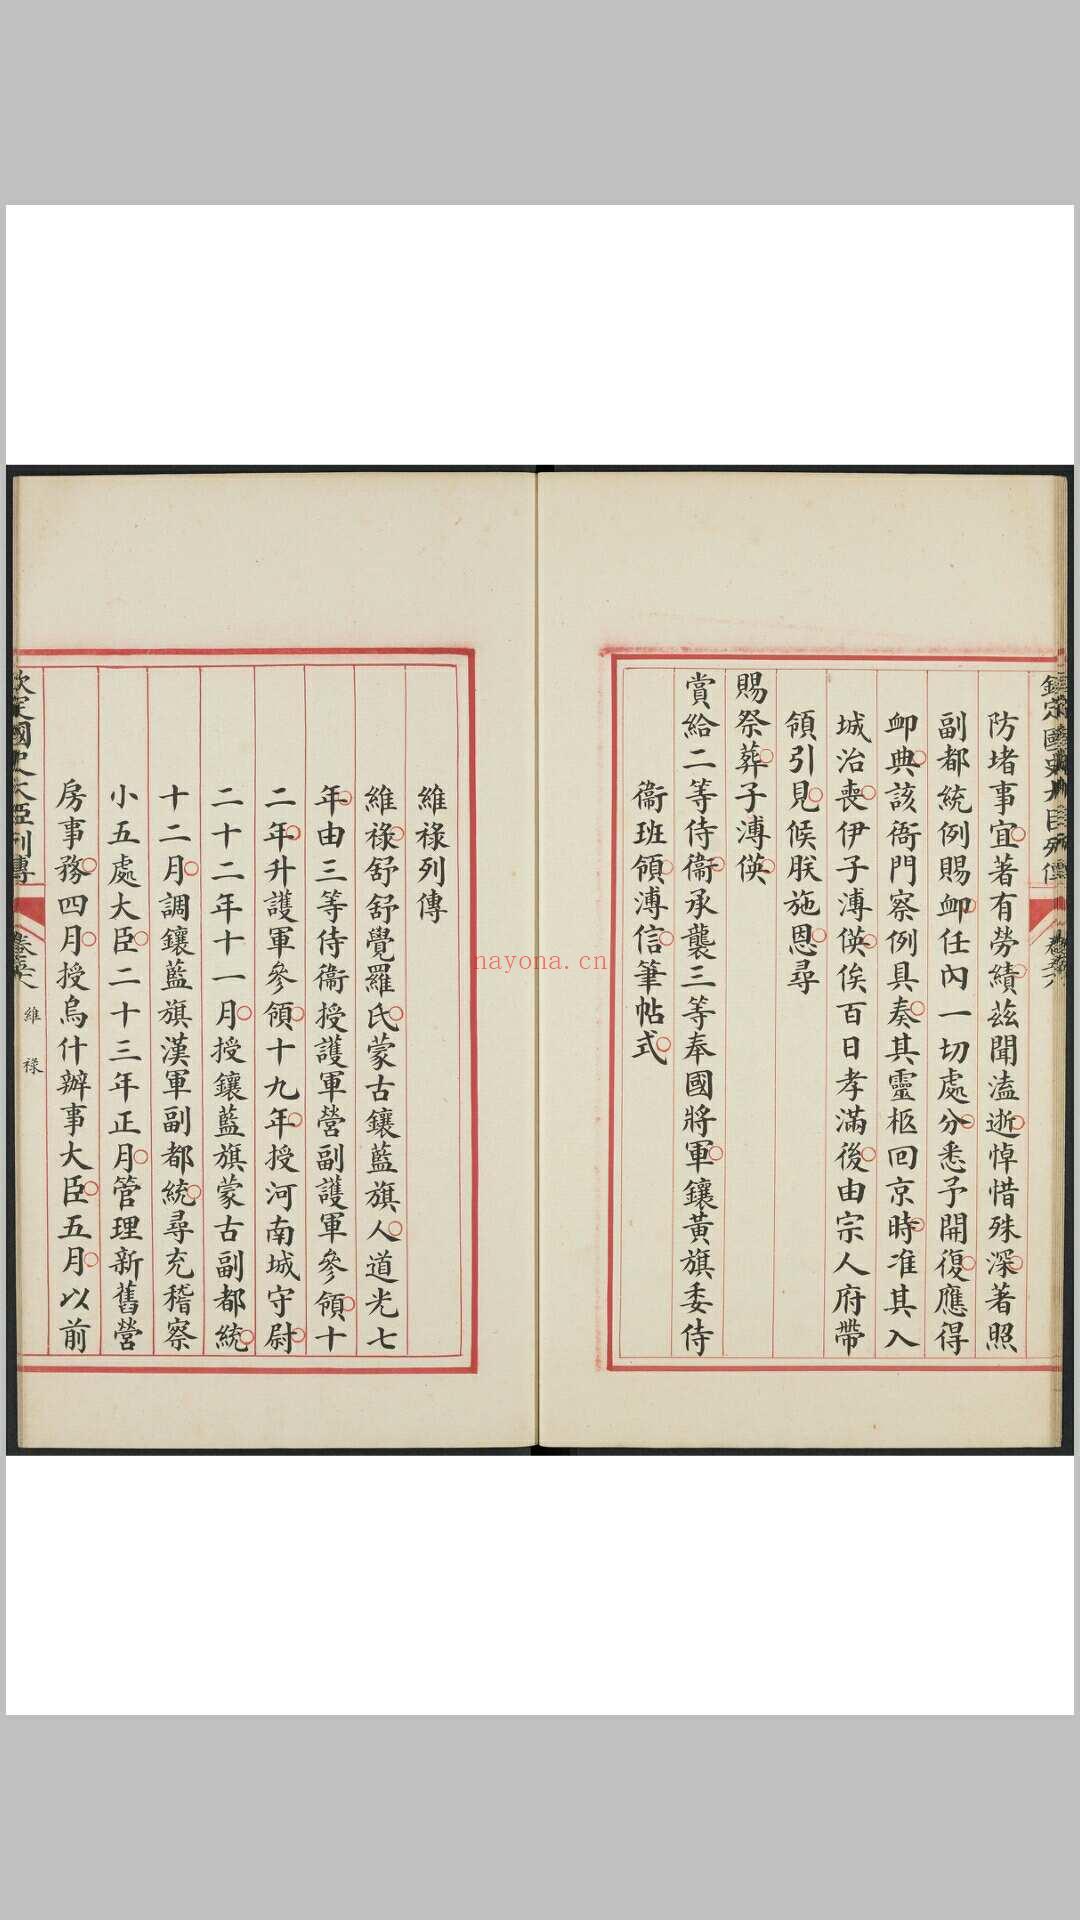 防堵事宜著有勞績茲聞溘逝悼惜殊深著照
副都統例賜卹任內一切處分悉予開復應得
卹典該衙門察例具奏其靈柩回京時准其入
城治喪伊子溥僙俟百日孝滿後由宗人府帶
領引見候朕施恩尋
賜祭葬子溥僙
賞給二等侍衞承襲三等奉國將軍鑲黃旗委侍
衞班領溥信筆帖式
維祿列傳
維祿舒舒覺羅氏蒙古鑲藍旗人道光七
年由三等侍衞授護軍營副護軍參領十
二年升護軍參領十九年授河南城守尉
二十二年十一月授鑲藍旗蒙古副都統
十二月調鑲藍旗漢軍副都統尋充稽察
小五處大臣二十三年正月管理新舊營
房事務四月授烏什辦事大臣五月以前
欽定國史大臣列傳
維祿
nayona.cn